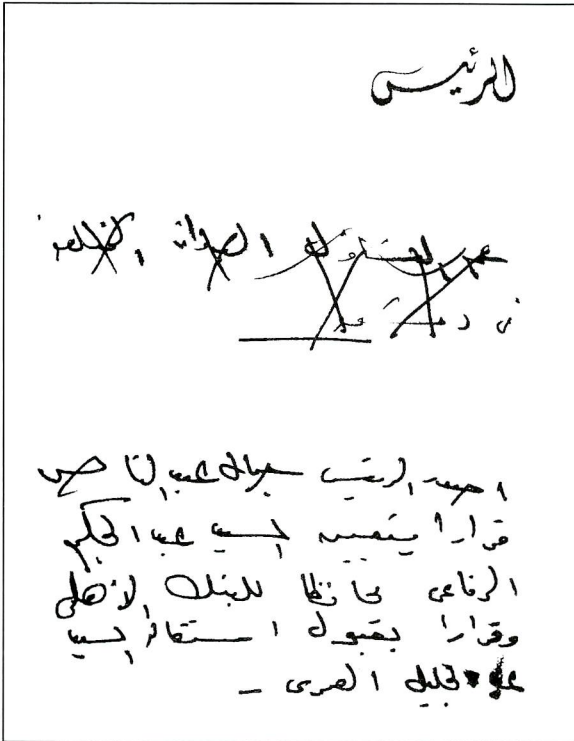 الرئيس
في دمشق
اصدر الرئيس جمال عبد الناصر
قرارا بتعيين السيد عبد الحكيم
الرفاعي محافظا للبنك الاهلي
وقرارا بقبول استقالة السيد
عبد الجليل العمرى –